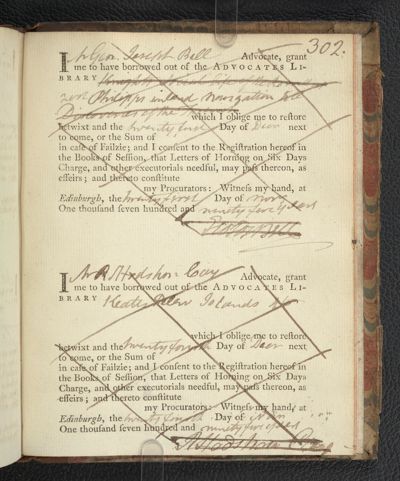 302.
I Mr Geo. Joseph Bell Advocate, grant
me to have borrowed out of the ADVOCATES LI-
BRARY
Philips inland Navigation &c
Discoveries of the which I oblige me to reſtore
betwixt and the twenty first Day of Decr next
to come, or the Sum of
in caſe of Failzie; and I conſent to the Regiſtration hereof in
the Books of Seſſion, that Letters of Horning on Six Days
Charge, and other executorials needful, may paſs thereon, as
effeirs; and thereto conſtitute
my Procurators: Witneſs my hand, at
Edinburgh, the twenty first Day of Novr
One thouſand ſeven hundred and ninety five years
I Mr R. Hodshon Cay Advocate, grant
me to have borrowed out of the ADVOCATES LI-
BRARY Keates Pelew Islands 4to
which I oblige me to reſtore
betwixt and the twenty fourth Day of Decr next
to come, or the Sum of
in caſe of Failzie; and I conſent to the Regiſtration hereof in
the Books of Seſſion, that Letters of Horning on Six Days
Charge, and other executorials needful, may paſs thereon, as
effeirs; and thereto conſtitute
my Procurators: Witneſs my hand, at
Edinburgh, the twenty fourth Day of Novr
One thouſand ſeven hundred and ninety five years
R Hodshon Cay